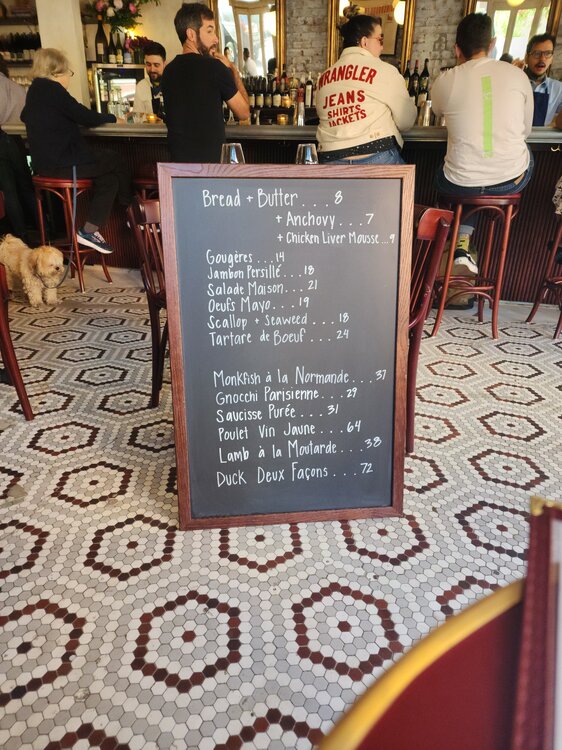 WRANGLER
JEANS
SHIRTS
JACKETS
Bread + Butter . . . 8
+ Anchovy . . . 7
+ Chicken Liver Mousse ... 9
Gougères . . . 14
Jambon Persillé . . . 18
Salade Maison . . . 21
Oeufs Mayo . . . 19
Scallop + Seaweed . . . . 18
Tartare de Boeuf . . . 24
Monkfish à la Normande . . . . 37
Gnocchi Parisienne . . . . 29
Saucisse Purée . . . . 31
Poulet Vin Jaune . . . . 64
Lamb à la Moutarde . . . 38
Duck Deux Façons . . . . 72